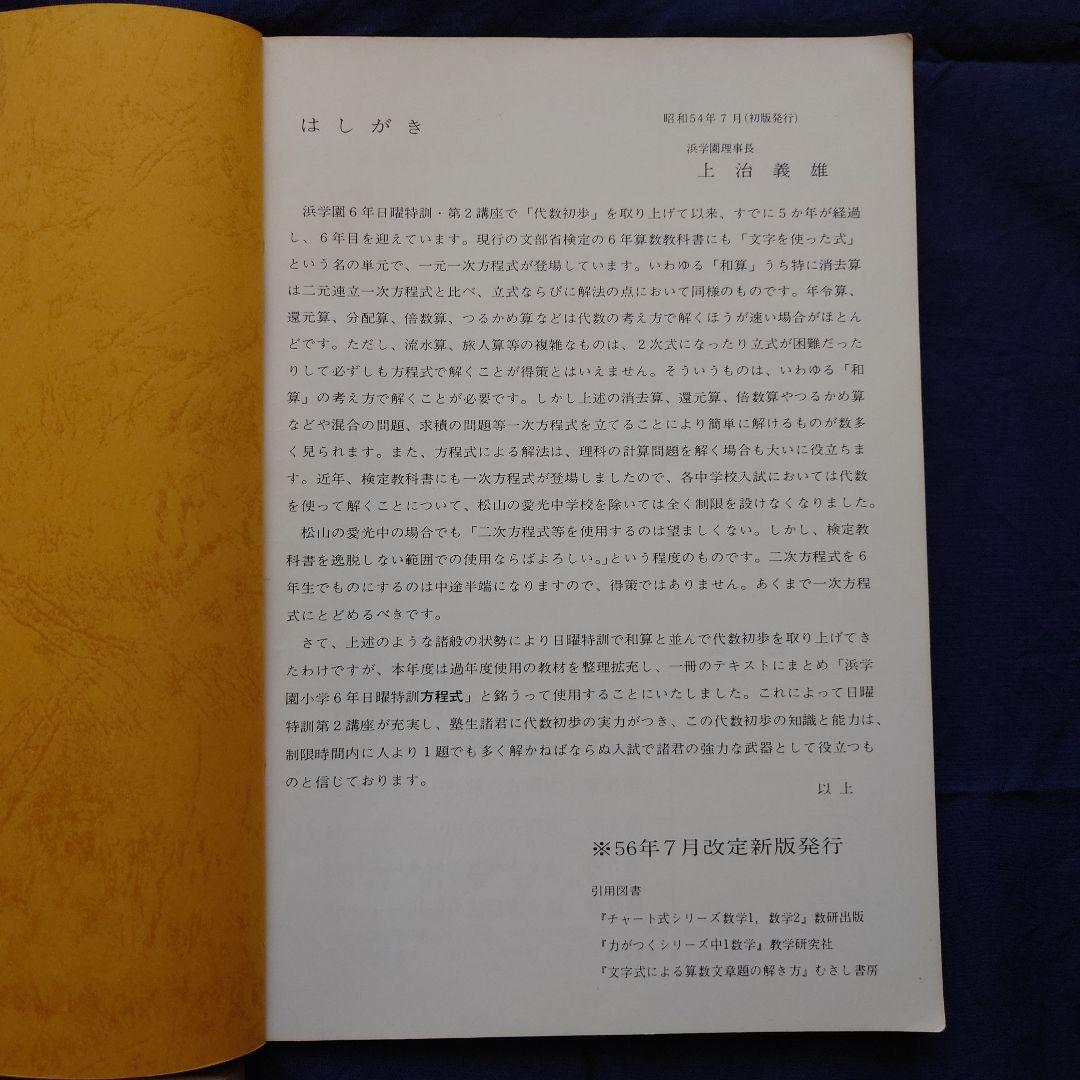 はしがき
昭和54年7月(初版発行)
浜学園理事長
上治義雄
浜学園6年日曜特訓・第2講座で「代数初歩」を取り上げて以来、すでに5か年が経過
し、6年目を迎えています。現行の文部省検定の6年算数教科書にも「文字を使った式」
という名の単元で、一元一次方程式が登場しています。いわゆる「和算」うち特に消去算
は二元連立一次方程式と比べ、立式ならびに解法の点において同様のものです。年令算、
還元算、分配算、倍数算、つるかめ算などは代数の考え方で解くほうが速い場合がほとん
どです。ただし、流水算、旅人算等の複雑なものは、2次式になったり立式が困難だった
りして必ずしも方程式で解くことが得策とはいえません。そういうものは、いわゆる「和
算」の考え方で解くことが必要です。しかし上述の消去算、還元算、倍数算やつるかめ算
などや混合の問題、求積の問題等一次方程式を立てることにより簡単に解けるものが数多
く見られます。また、方程式による解法は、理科の計算問題を解く場合も大いに役立ちま
す。近年、検定教科書にも一次方程式が登場しましたので、各中学校入試においては代数
を使って解くことについて、松山の愛光中学校を除いては全く制限を設けなくなりました。
松山の愛光中の場合でも「二次方程式等を使用するのは望ましくない。しかし、検定教
科書を逸脱しない範囲での使用ならばよろしい。」という程度のものです。二次方程式を6
年生でものにするのは中途半端になりますので、得策ではありません。あくまで一次方程
式にとどめるべきです。
さて、上述のような諸般の状勢により日曜特訓で和算と並んで代数初歩を取り上げてき
たわけですが、本年度は過年度使用の教材を整理拡充し、一冊のテキストにまとめ「浜学
園小学6年日曜特訓方程式」と銘うって使用することにいたしました。これによって日曜
特訓第2講座が充実し、塾生諸君に代数初歩の実力がつき、この代数初歩の知識と能力は、
制限時間内に人より1題でも多く解かねばならぬ入試で諸君の強力な武器として役立つも
のと信じております。
以上
※56年7月改定新版発行
引用図書
『チャート式シリーズ数学1,数学2』数研出版
『力がつくシリーズ中1数学』教学研究社
『文字式による算数文章題の解き方』むさし書房